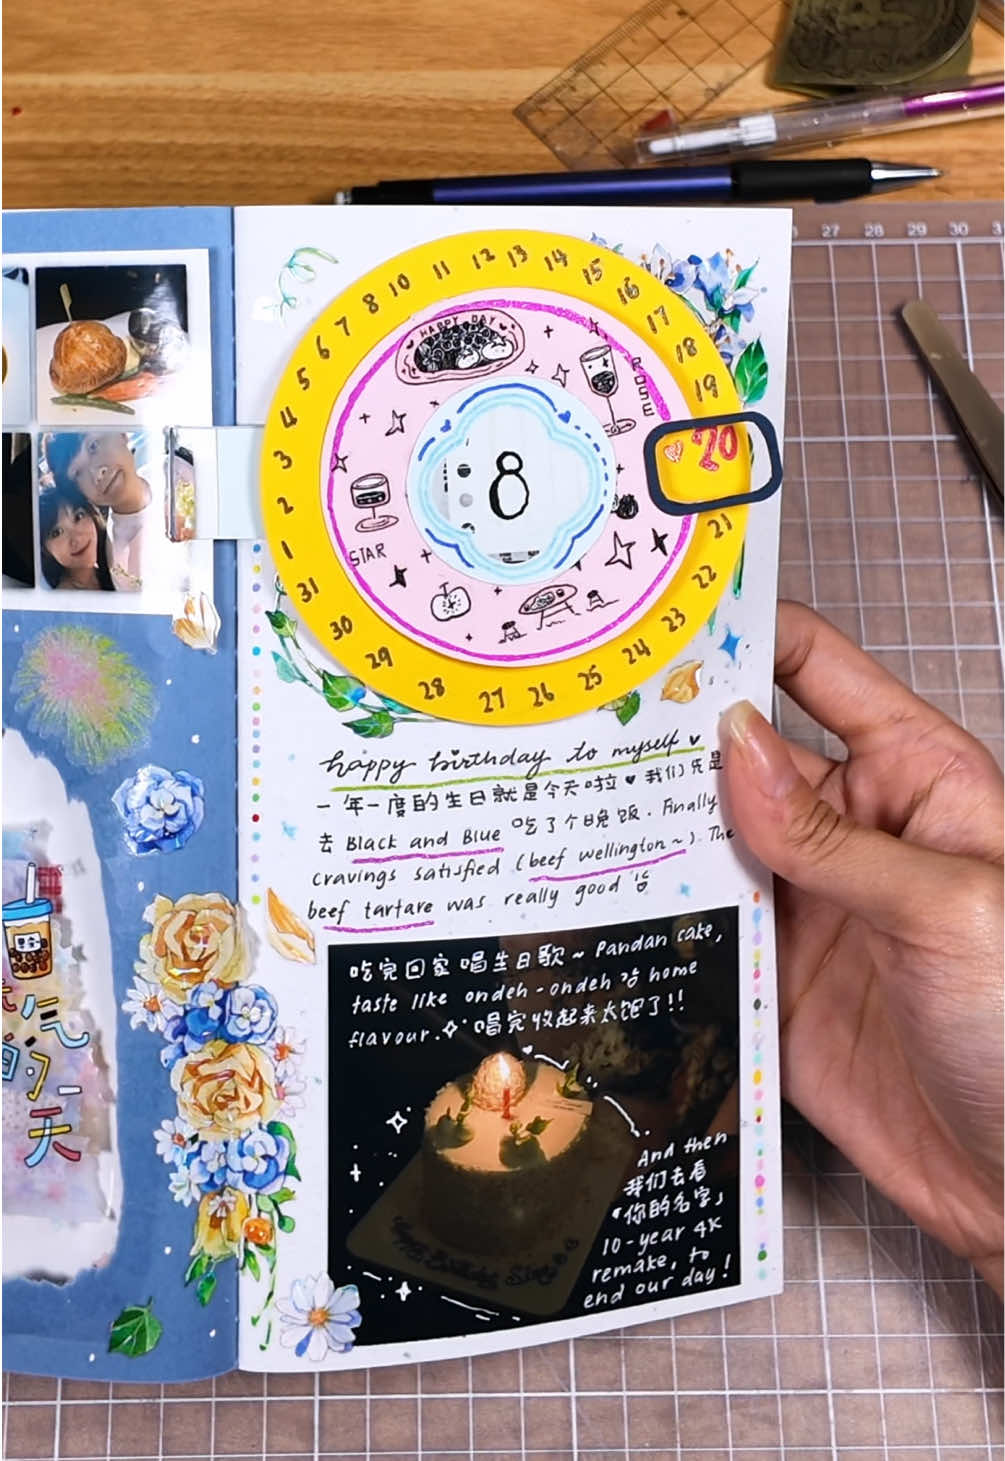 27 28 29 30
1 2 3 4 5 6 7 8 10 11 12 13 14 15 16 17 18 19 20 21 22 23 24 25 26 27 28 29 30 31
HAPPY DAY
ROSE
STAR
8
happy birthday to myself
一年一度的生日就是今天啦♥我们先是
去 Black and Blue 吃了个晚饭. Finally
cravings satisfied (beef wellington~). The
beef tartare was really good
吃完回家唱生日歌~ Pandan cake,
taste like ondeh-ondeh 的 home
flavour. 唱完收起来太饱了!!
And then
我们去看
「你的名字」
10-year 4K
remake, to
end our day!
气
的
一天